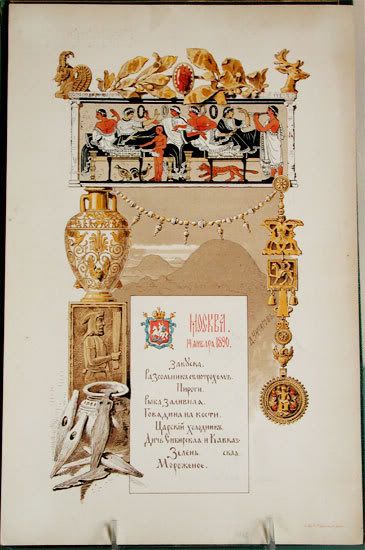 МОСКВА.
14 января 1890.
Закуска.
Разсольникъ съ потрохомъ.
Пироги.
Рыба Заливная.
Говядина на кости.
Царскiй холодникъ.
Дичь Сибирская и Кавказ-
Зелень. ская.
Мороженое.